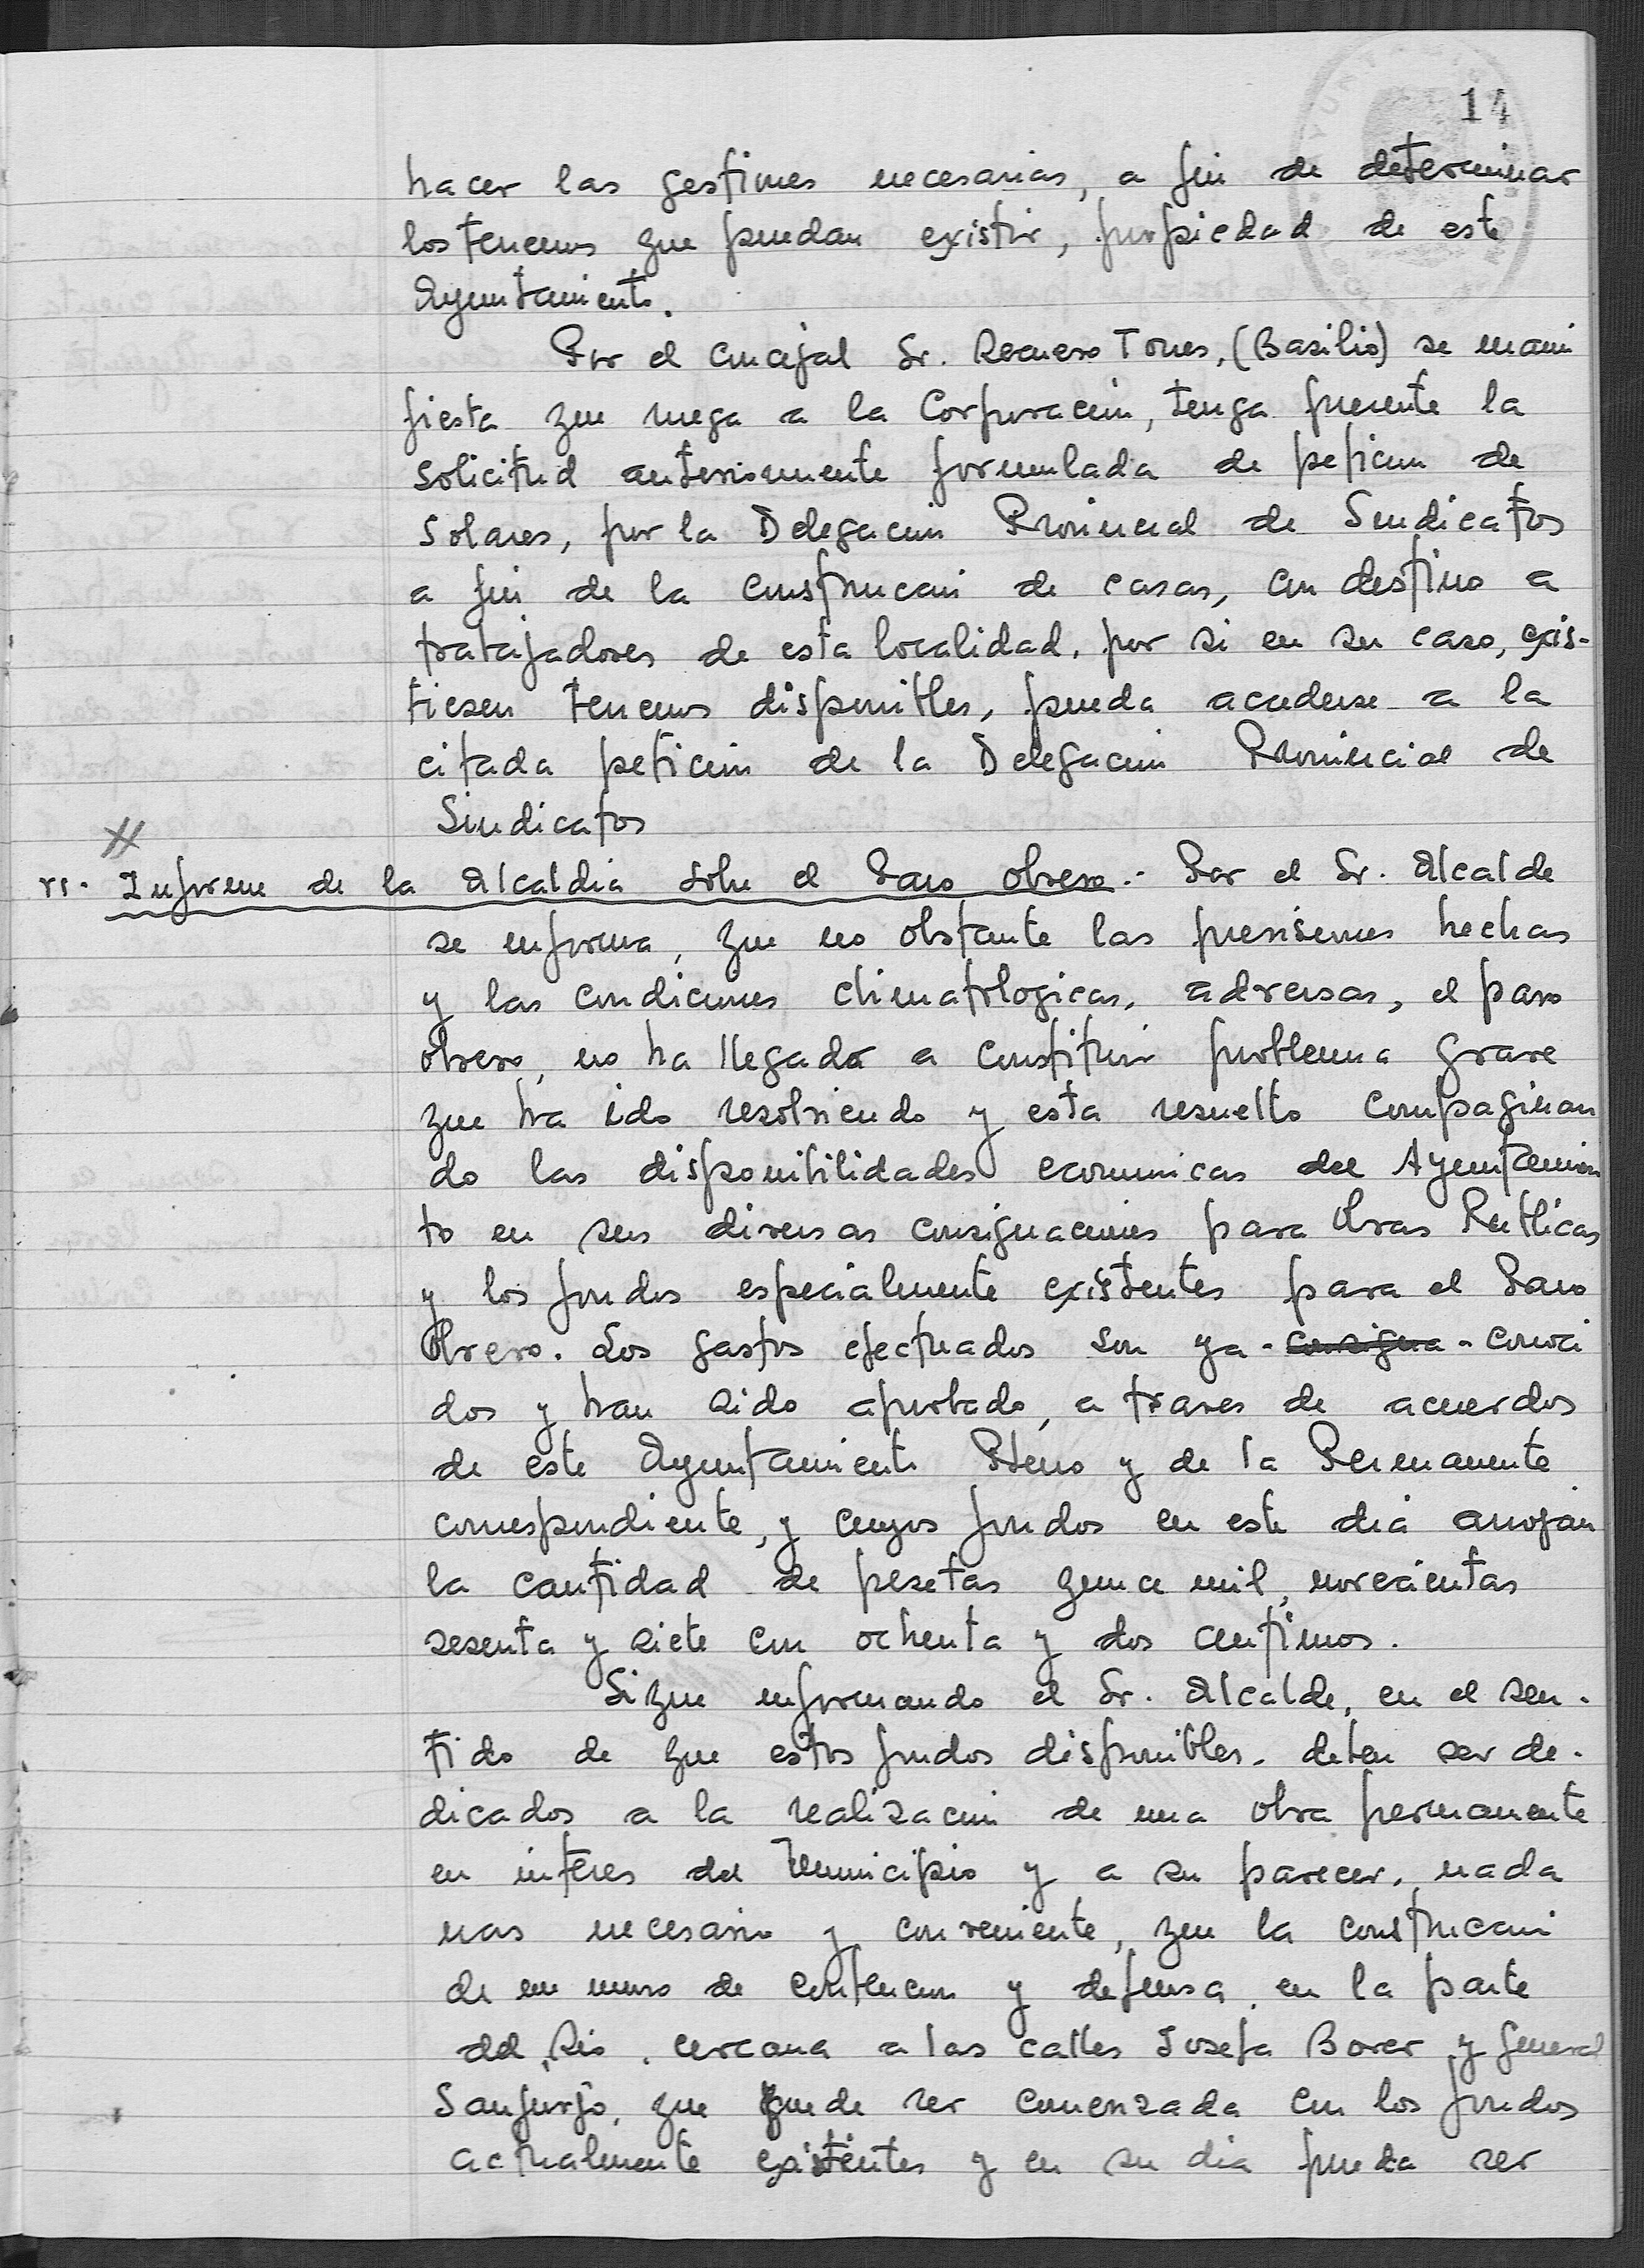 14
hacer las gestiones necesarias, a fin de determinar
los terrenos que puedan existir, propiedad de este
Ayuntamiento.
Por el concejal Sr. Recuero Torres, (Basilio) se mani
fiesta que ruega a la Corporacion, tenga presente la
solicitud anteriormente formulada de peticion de
Solares, por la Delegacion Provincial de Sindicatos
a fin de la construccion de casas, con destino a
trabajadores de esta localidad, por si en su caso, exis-
tiesen terrenos disponibles, pueda accederse a la
citada peticion de la Delegacion Provincial de
Sindicatos
Informe de la Alcaldia sobre el Paro obrero.- Por el Sr. Alcalde
se informa, que no obstante las previsiones hechas
y las condiciones climatologicas, adversas, el paro
obrero, no ha llegado a constituir problema grave
que ha ido resolviendo y esta resuelto compaginan
do las disponibilidades economicas del Ayuntamien
to en sus diversas consignaciones para Obras Publicas
y los fondos especialmente existentes para el Paro
Obrero. Los gastos efectuados son ya - consigna - conoci
dos y han sido aprobado, a traves de acuerdos
de este Ayuntamiento Pleno y de la Permanente
correspondiente, y cuyos fondos en este dia arrojan
la cantidad de pesetas quince mil, novecientas
sesenta y siete con ochenta y dos centimos.
Sigue informando el Sr. Alcalde, en el sen-
tido de que estos fondos disponibles, deben ser de-
dicados a la realizacion de una obra permanente
en interes del Municipio y a su parecer, nada
mas necesario y conveniente, que la construccion
de un muro de contencion y defensa, en la parte
del Rio, cercana a las calles Josefa Borer y General
Sanjurjo, que puede ser comenzada con los fondos
actualmente existentes y en su dia pueda ser